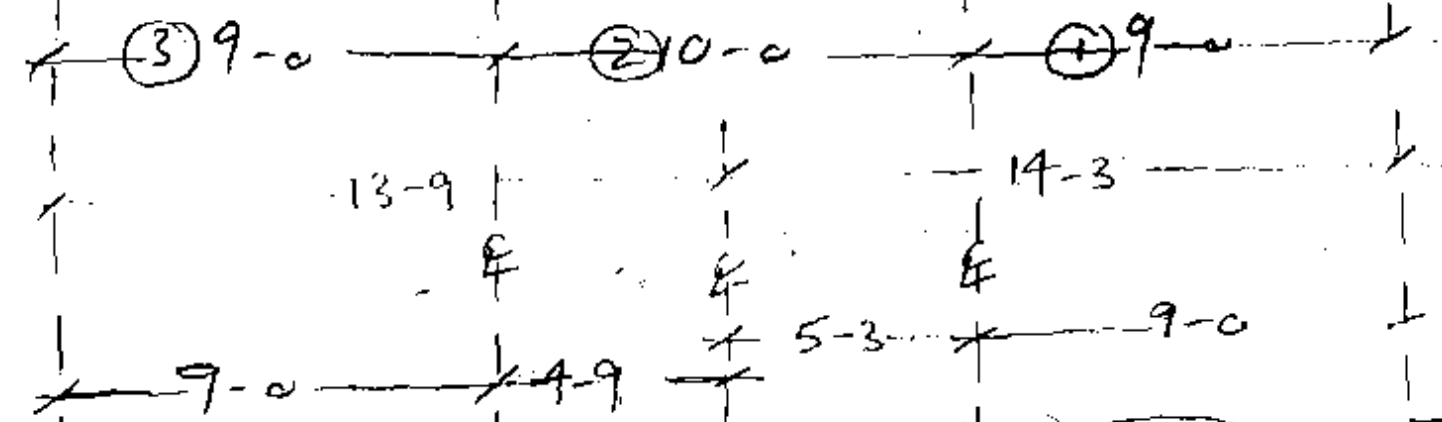 ③ 9-0 ② 10-0 ① 9-0
13-9 14-3
℄ ℄ ℄
5-3 9-0
9-0 4-9